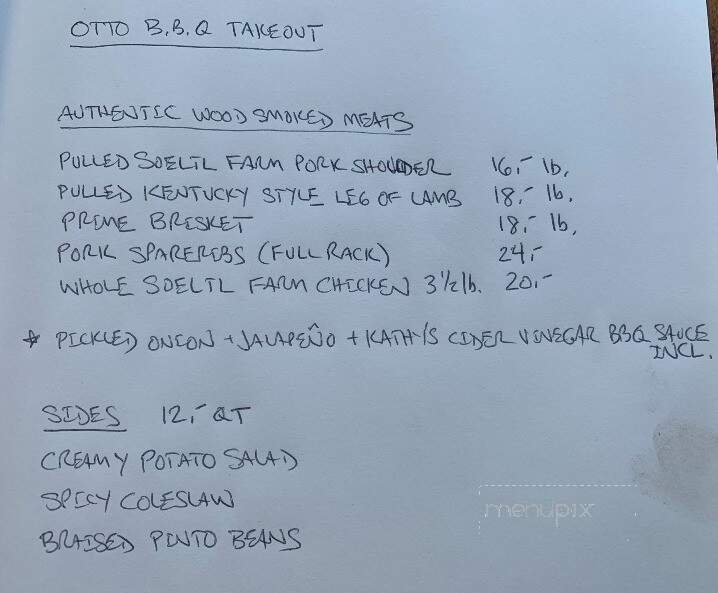 OTTO B.B.Q TAKEOUT
AUTHENTIC WOOD SMOKED MEATS
PULLED SOELTL FARM PORK SHOULDER 16,- lb,
PULLED KENTUCKY STYLE LEG OF LAMB 18,- lb,
PRIME BRISKET 18,- lb,
PORK SPARERIBS (FULL RACK) 24,-
WHOLE SOELTL FARM CHICKEN 3 1/2 lb. 20,-
* PICKLED ONION + JALAPEÑO + KATHY'S CIDER VINEGAR BBQ SAUCE
INCL.
SIDES 12,- QT
CREAMY POTATO SALAD
SPICY COLESLAW
BRAISED PINTO BEANS
menupix